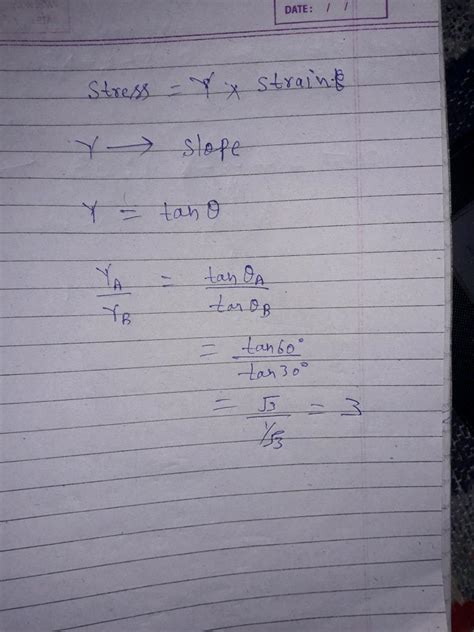 DATE: / /
Stress = Y x strain
Y → slope
Y = tanθ
Y_A / Y_B = tan θ_A / tan θ_B
= tan60° / tan30°
= √3 / 1/√3 = 3